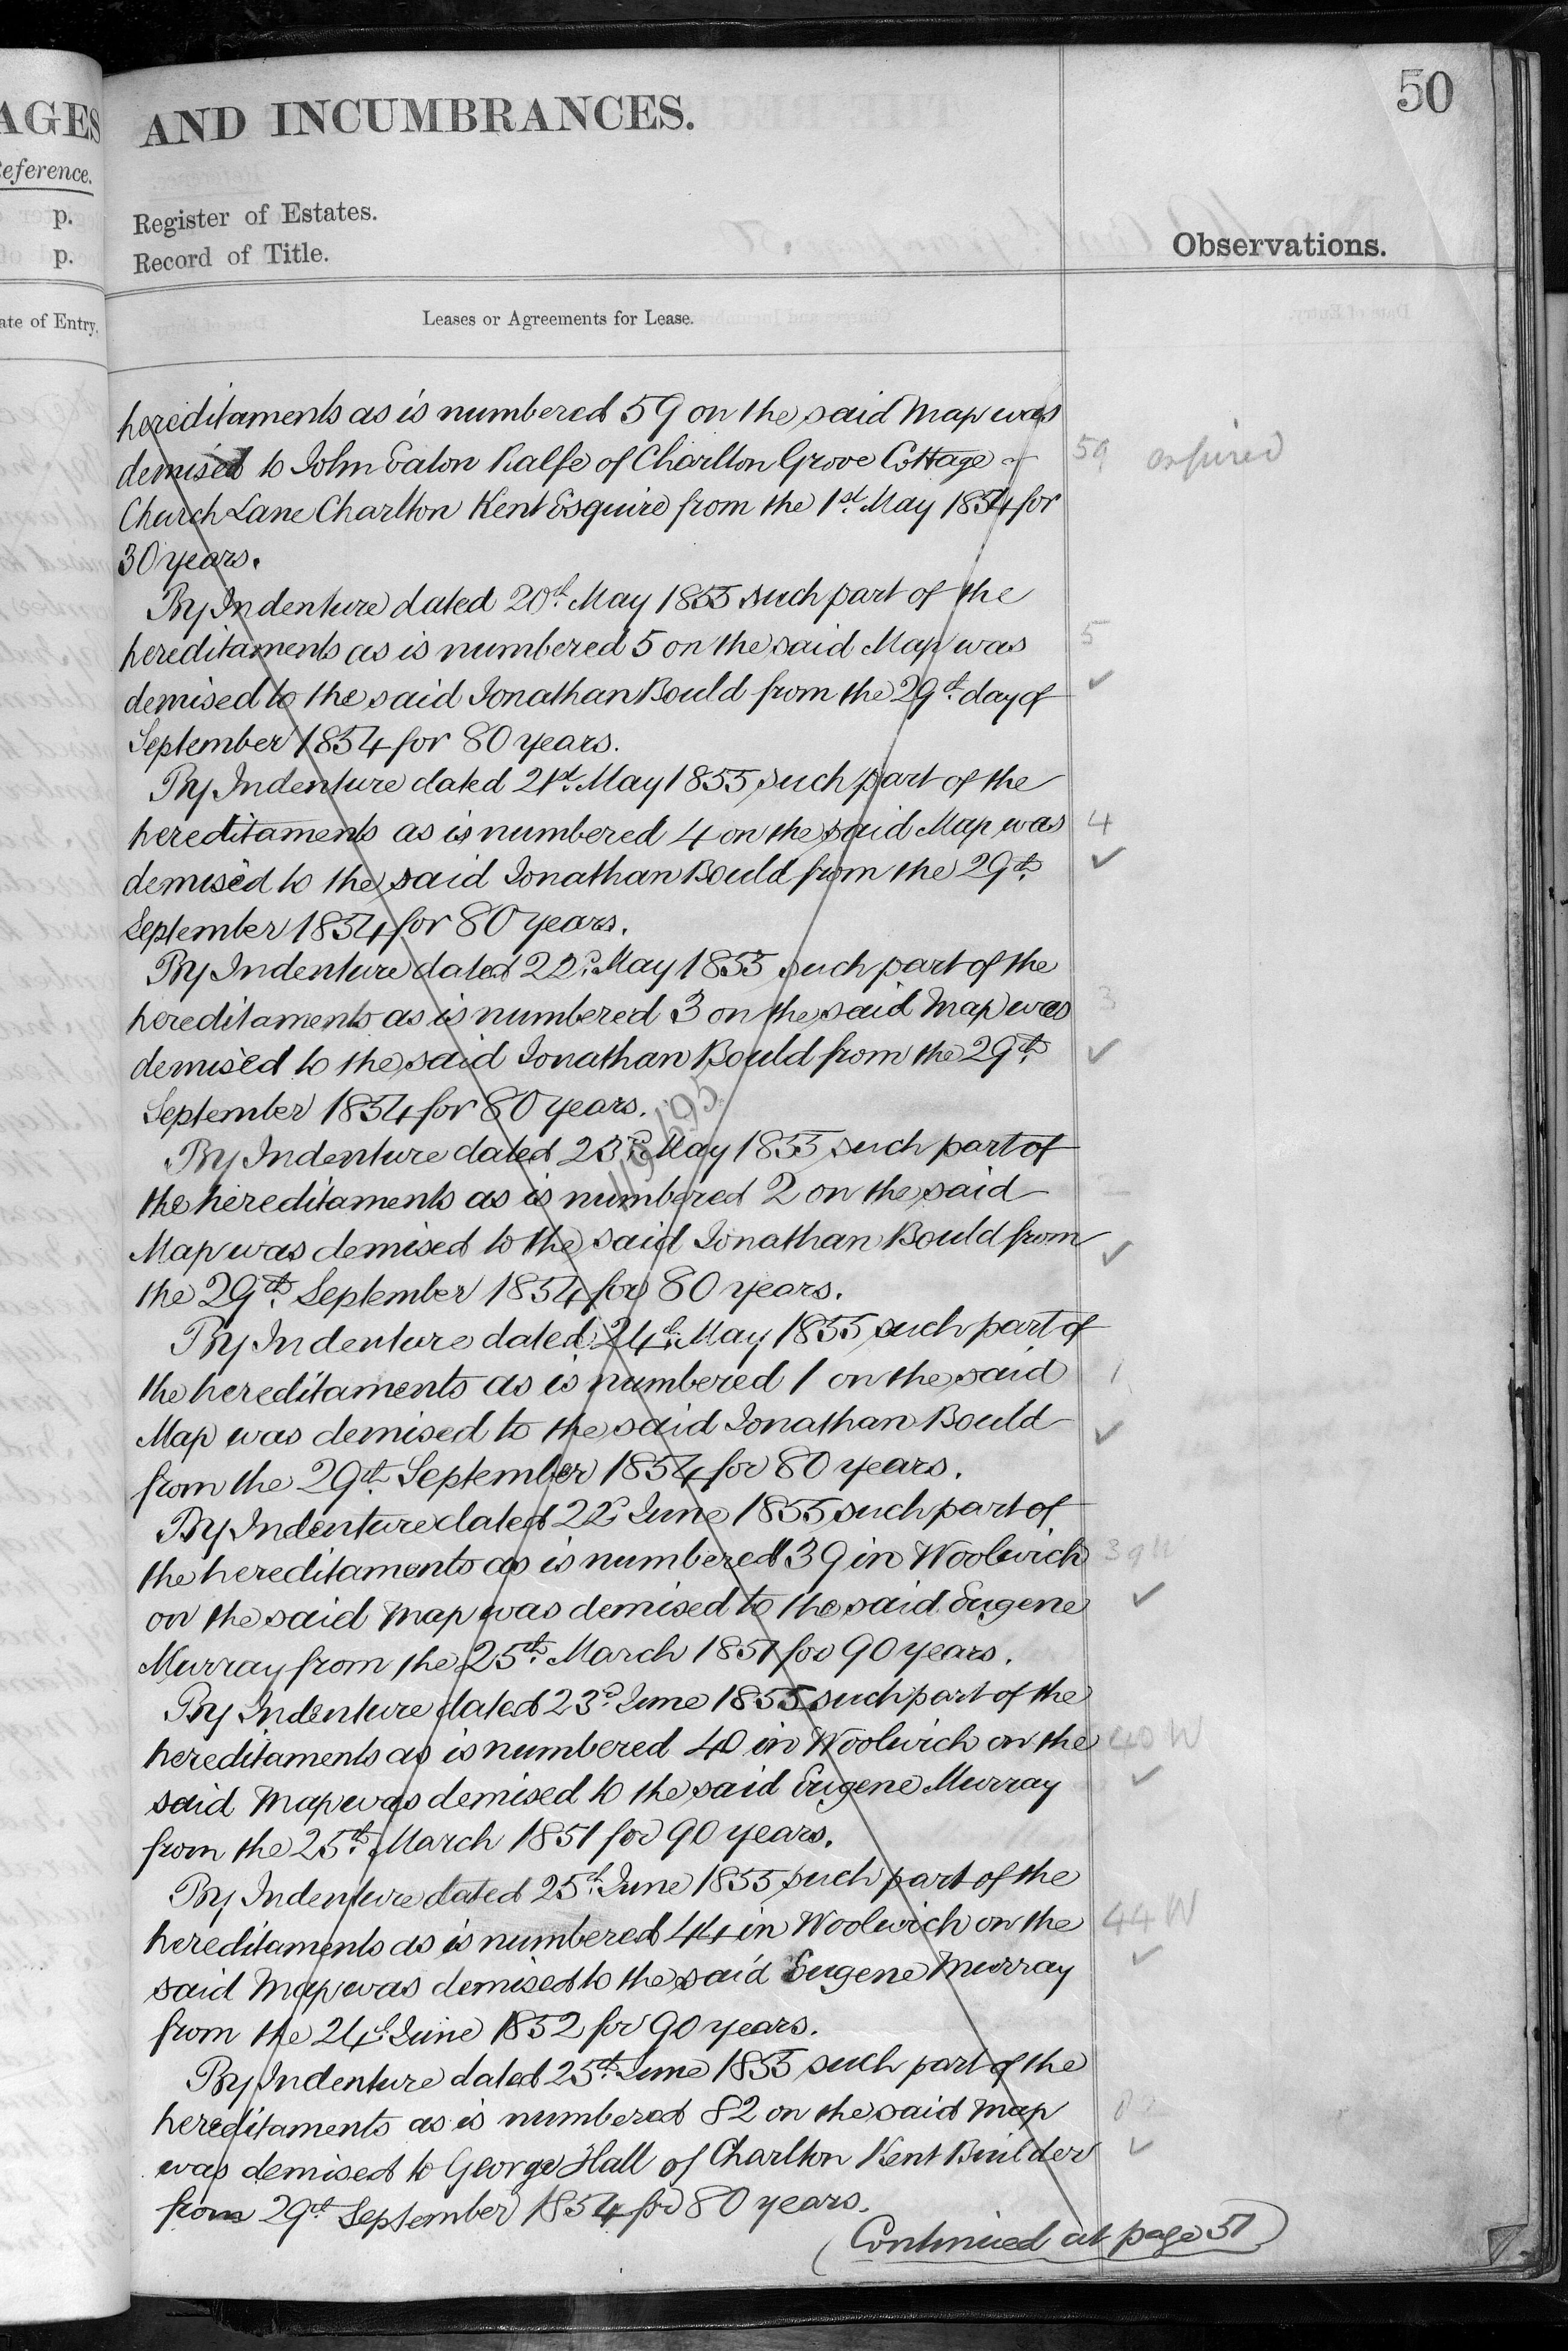 AGES
eference.
p.
p.
ate of Entry.
AND INCUMBRANCES.
50
Register of Estates.
Record of Title.
Observations.
Leases or Agreements for Lease.
hereditaments as is numbered 59 on the said Map was
demised to John Eaton Ralfe of Charlton Grove Cottage
59 expired
Church Lane Charlton Kent Esquire from the 1st. May 1854 for
30 years.
By Indenture dated 20th. May 1855 such part of the
hereditaments as is numbered 5 on the said Map was
5
demised to the said Jonathan Bould from the 29th. day of
✓
September 1854 for 80 years.
By Indenture dated 21st. May 1855 such part of the
hereditaments as is numbered 4 on the said Map was
4
demised to the said Jonathan Bould from the 29th.
✓
September 1854 for 80 years.
By Indenture dated 22d. May 1855 such part of the
hereditaments as is numbered 3 on the said Map was
3
demised to the said Jonathan Bould from the 29th.
✓
September 1854 for 80 years.
By Indenture dated 23d. May 1855 such part of
the hereditaments as is numbered 2 on the said
Map was demised to the said Jonathan Bould from
✓
the 29th. September 1854 for 80 years.
By Indenture dated 24th. May 1855 such part of
the hereditaments as is numbered 1 on the said
1
Map was demised to the said Jonathan Bould
✓
from the 29th. September 1854 for 80 years.
By Indenture dated 22d June 1855 such part of
the hereditaments as is numbered 39 in Woolwich
39 W
on the said Map was demised to the said Eugene
✓
Murray from the 25th. March 1851 for 90 years.
By Indenture dated 23d. June 1855 such part of the
hereditaments as is numbered 40 in Woolwich on the
40 W
said Map was demised to the said Eugene Murray
✓
from the 25th. March 1851 for 90 years.
By Indenture dated 25th. June 1855 such part of the
hereditaments as is numbered 44 in Woolwich on the
44 W
said Map was demised to the said Eugene Murray
✓
from the 24th June 1852 for 90 years.
By Indenture dated 25th. June 1855 such part of the
hereditaments as is numbered 82 on the said Map
82
was demised to George Hall of Charlton Kent Builder
✓
from 29th September 1854 for 80 years.
(Continued at page 51)